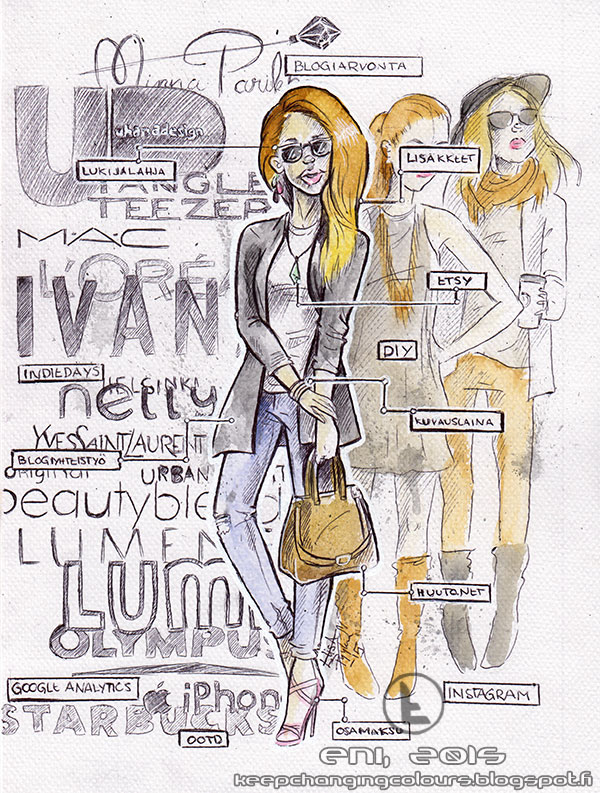 Minna Parikka
BLOGIARVONTA
UP
uhanadesign
LUKIJALAHJA
LISÄKKEET
TANGLE
TEEZER
MAC
L'ORÉ
ETSY
IVAN
DIY
INDIEDAYS
HELSINKI
nelly
KUVAUSLAINA
YVESSAINTLAURENT
BLOGIYHTEISTYÖ
original
URBAN
beautyble
LUMEN
LUMI
HUUTO.NET
OLYMPUS
GOOGLE ANALYTICS
iPhon
INSTAGRAM
STARBUCKS
OSAMAKSU
OOTD
ENI, 2015
keepchangingcolours.blogspot.fi